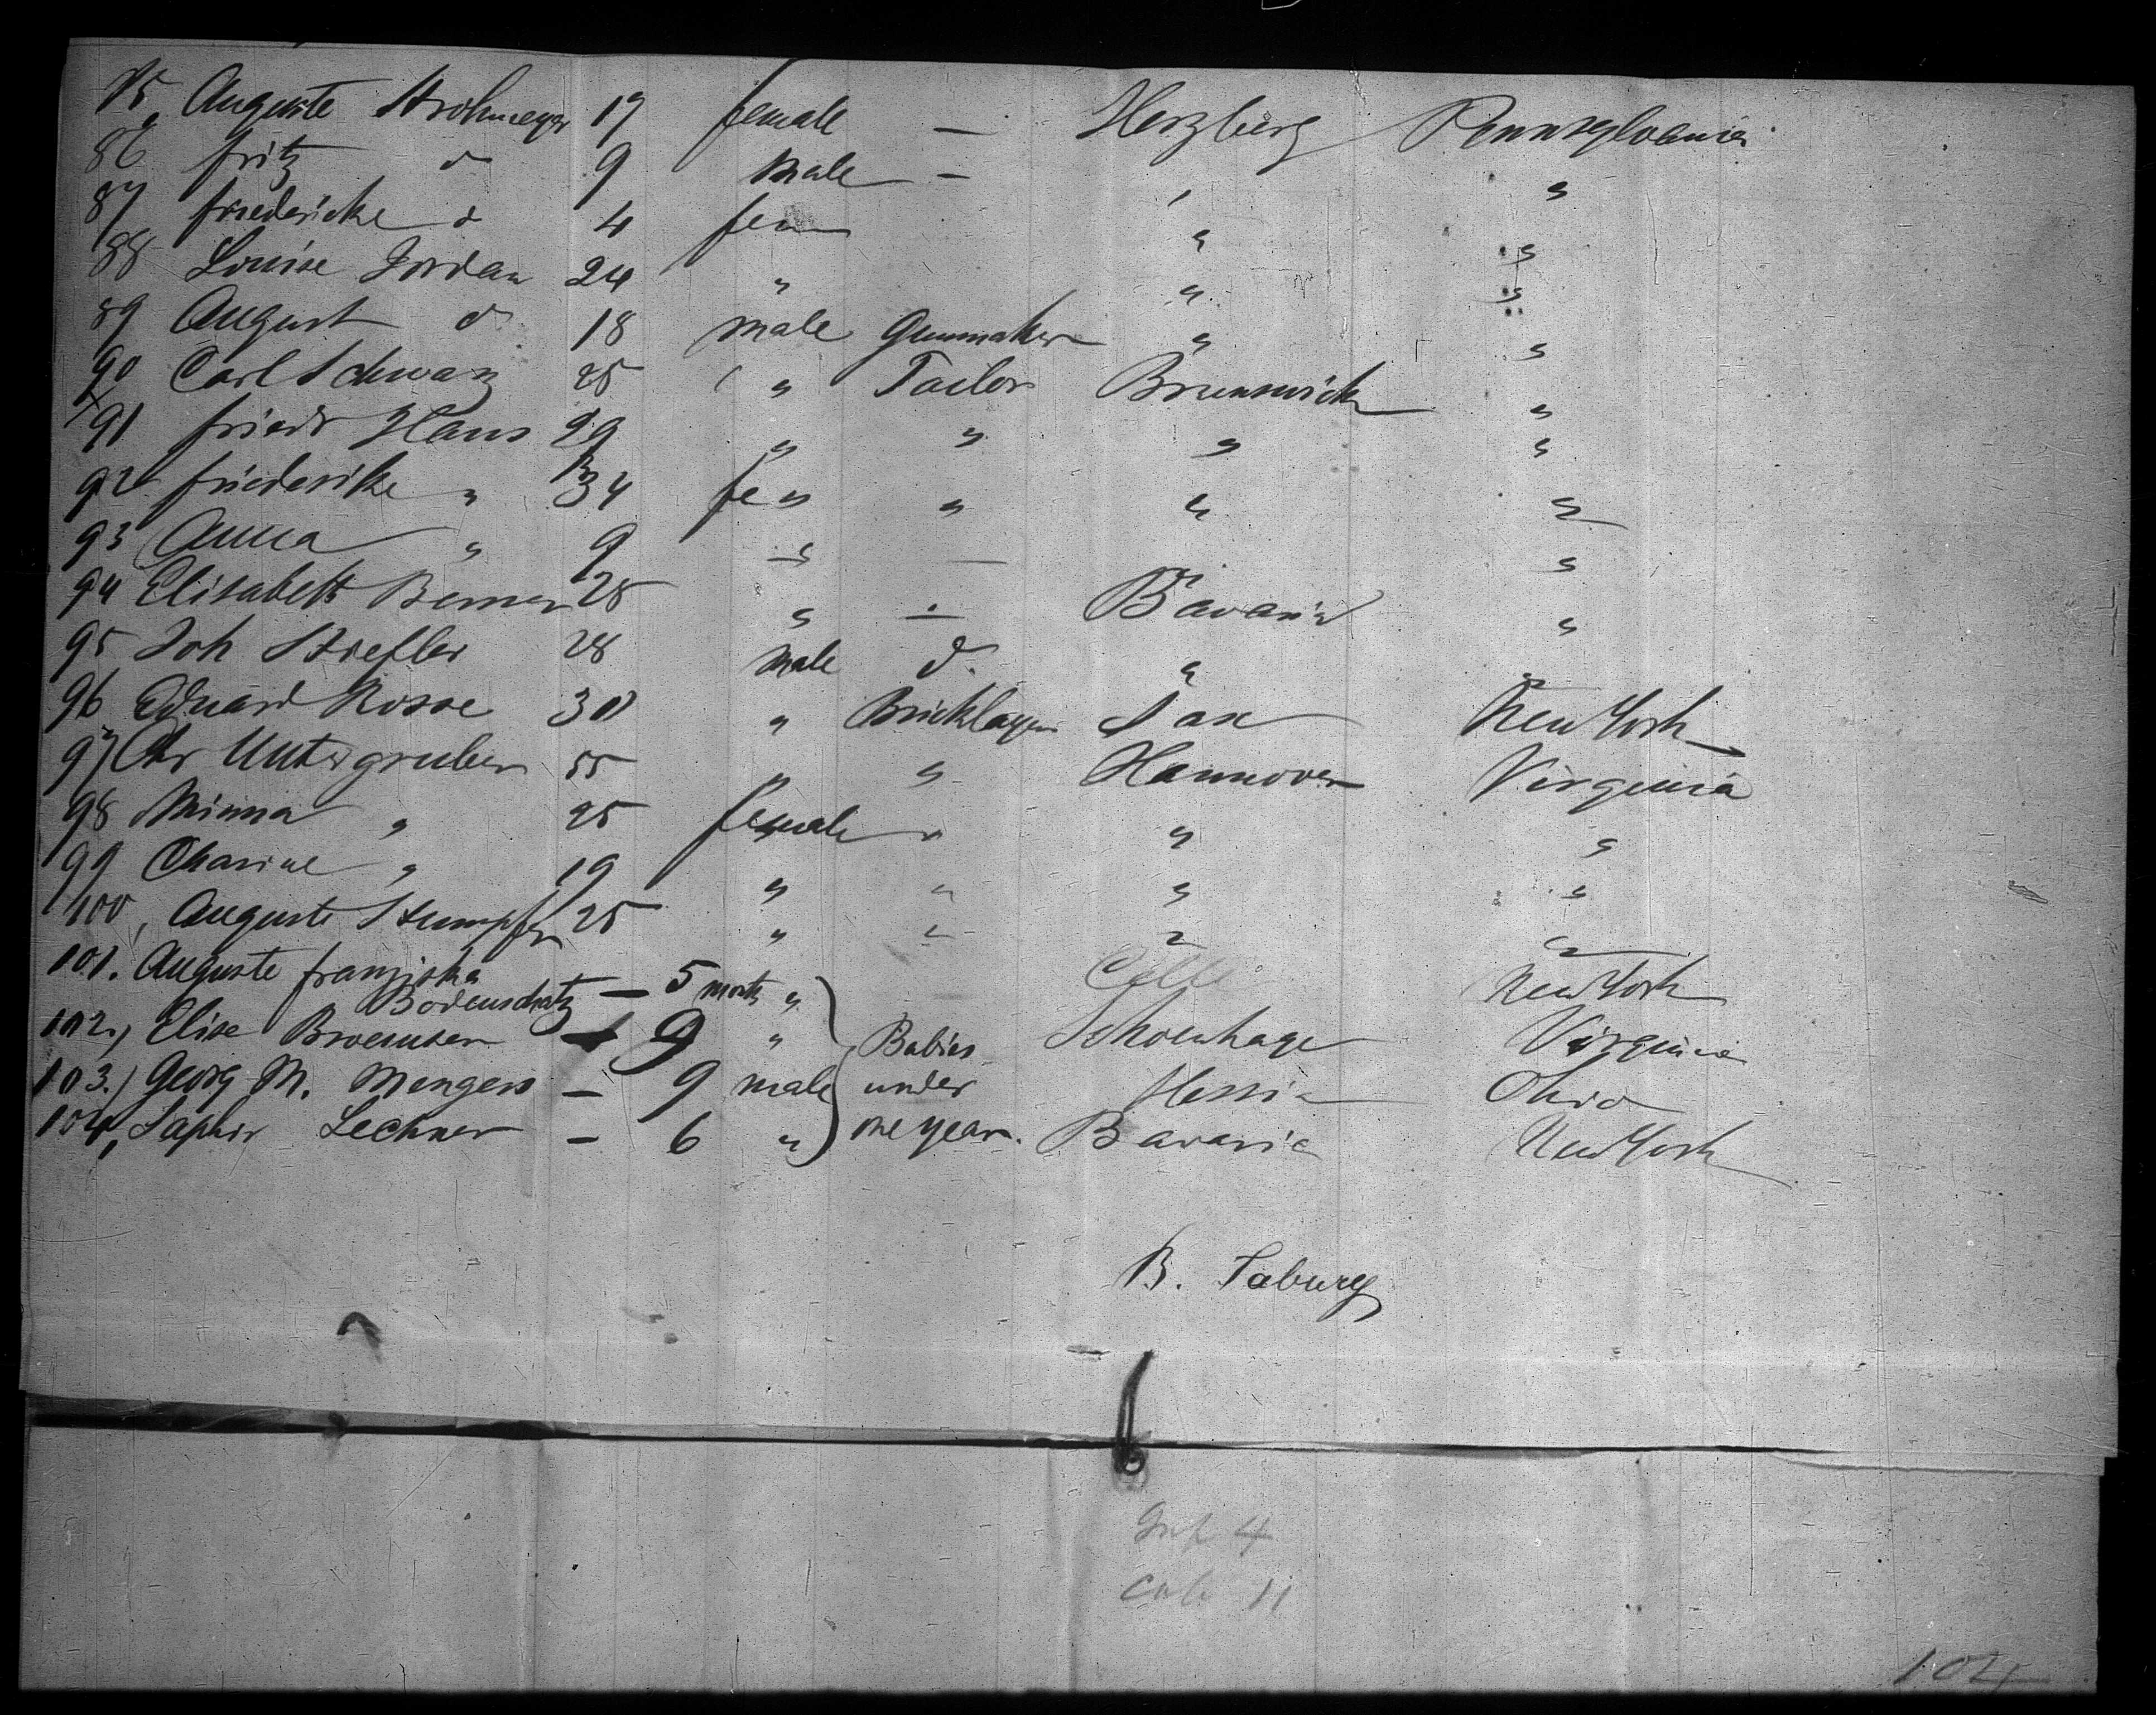 85, Auguste Strohmeyer 17 female — Herzberg Pennsylvania
86 Fritz do 9 Male — " "
87 Friedericke do 4 fem " "
88 Louise Jordan 24 " " "
89 August do 18 male Gunmaker " "
90 Carl Schwarz 25 " Tailor Brunswick "
91 Friedr Haus 29 " " " "
92 Friederike " 34 fe " " " "
93 Anna " 9 " — " "
94 Elisabeth Berner 28 " — Bavaria "
95 Joh Striefler 28 Male do " "
96 Eduard Rosse 30 " Bricklayer Sax New York
97 Chr Untergruber 55 " " Hannover Virginia
98 Minna " 25 female " " "
99 " 19 " " " "
100, Auguste Stumpfer 25 " " " "
101. Auguste Franziska
Bodenschatz — 5 month " Celle New York
102., Elise Broemsen — 9 " Babies Schoenhage Virginia
103.) Georg M. Mengers — 9 male under Hessia Ohio
104, Saphir Lechner — 6 " one year. Bavaria New York
B. Taburg
Inf 4
11
104